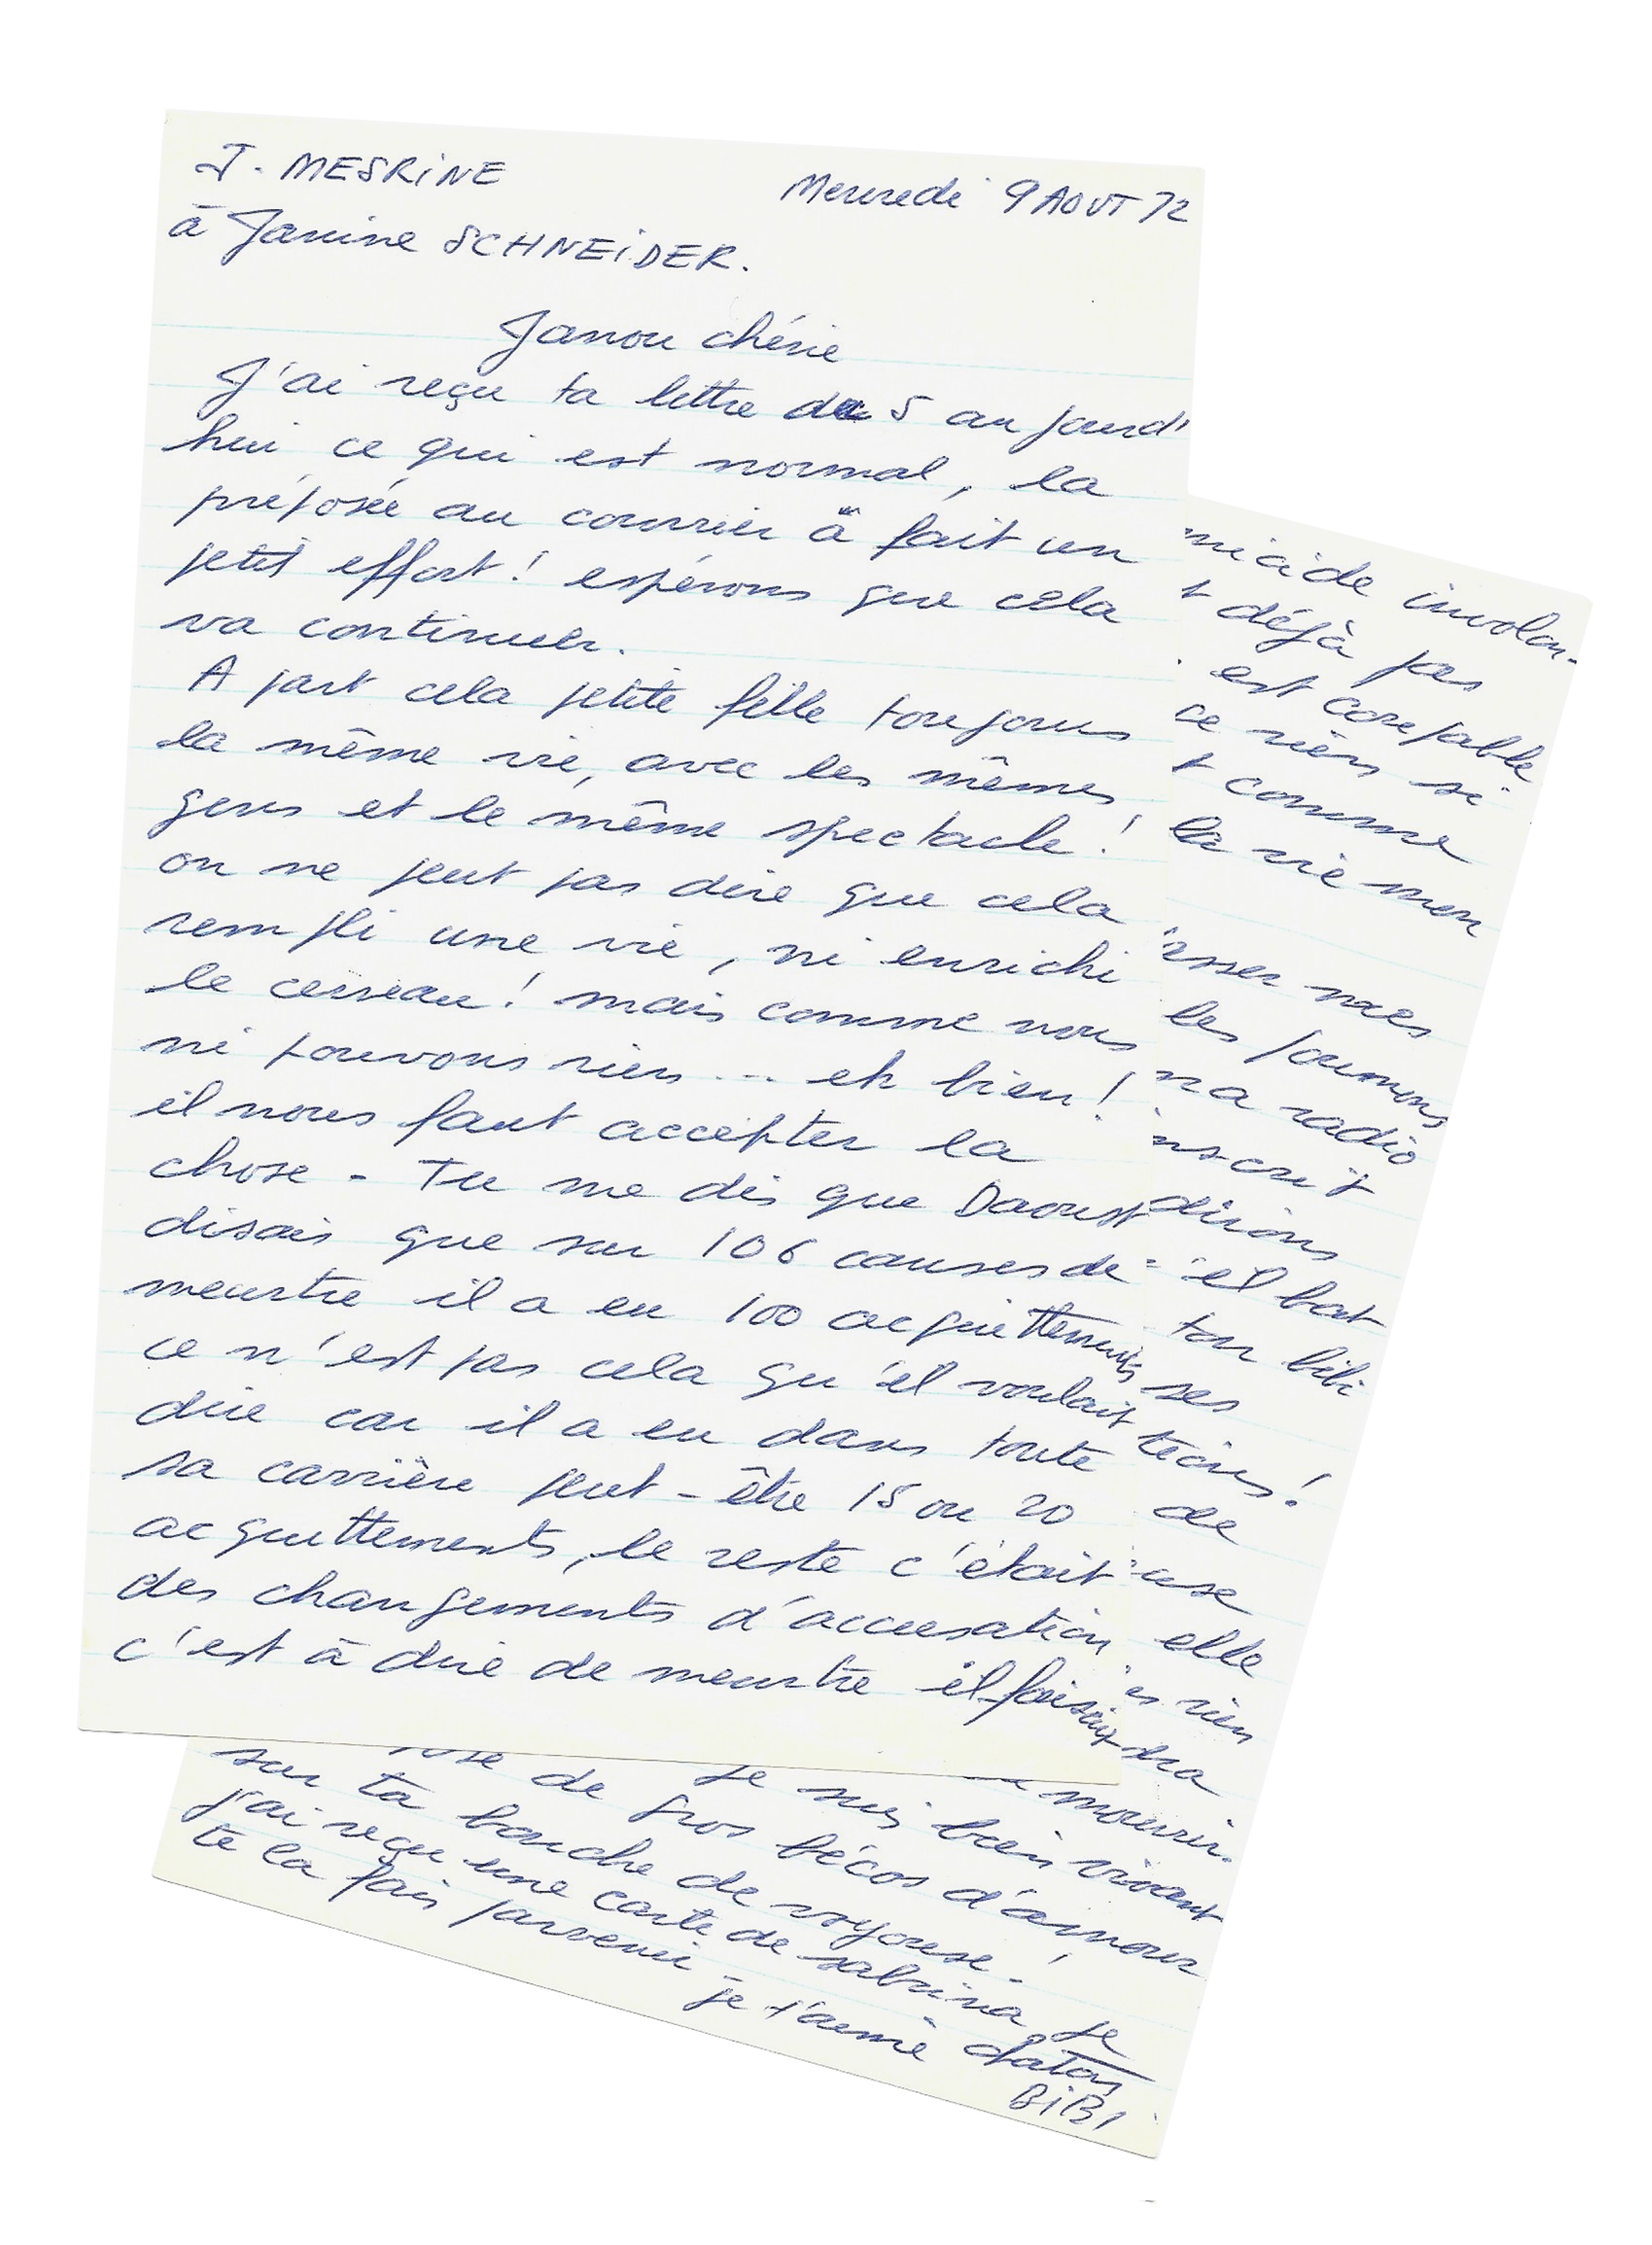 J. MESRINE
Mercredi 9 AOUT 72
à Janine SCHNEIDER.
Janou chérie
J'ai reçu ta lettre du 5 aujourd'
hui ce qui est normal, la
préposée au courrier à fait un
petit effort! espérons que cela
va continuer.
A part cela petite fille toujours
la même vie, avec les mêmes
gens et le même spectacle!
on ne peut pas dire que cela
rempli une vie, ni enrichi
le cerveau! mais comme nous
ni pouvons rien ... eh bien!
il nous faut accepter la
chose - Tu me dis que Daoust
disais que sur 106 causes de
meurtre il a eu 100 acquittements
ce n'est pas cela qu'il voulait
dire car il a eu dans toute
sa carrière peut-être 15 ou 20
acquittements, le reste c'était
des changements d'accusation
c'est à dire de meurtre il faisait
involon-
déjà pas
est coupable
ce rien si
comme
la vie mon
mes
les poumons
radio
dirions
il bat
ton bibi
ses
de
elle
rien
mourir.
je suis bien vivant
de gros bécos d'amour
sur ta bouche de voyouse.
j'ai reçu une carte de sabrina je
te la fais parvenir -
je t'aime chaton
BiBi